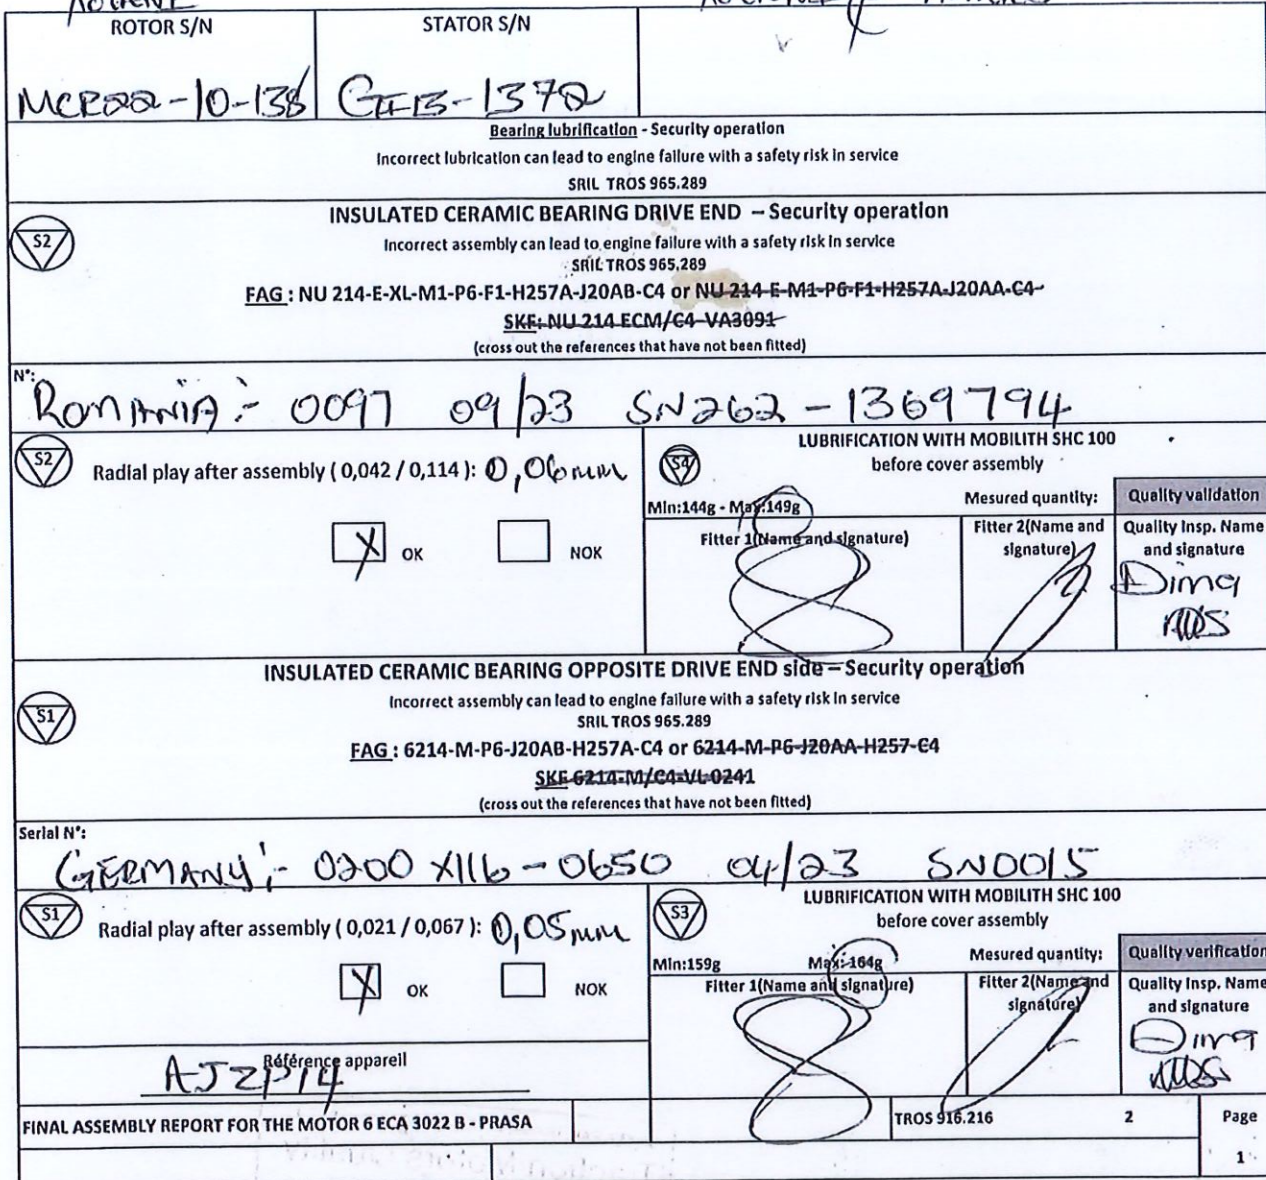 ROTOR S/N
STATOR S/N
MCR22-10-138
1372
Bearing lubrification - Security operation
Incorrect lubrication can lead to engine failure with a safety risk in service
SRIL TROS 965.289
S2
INSULATED CERAMIC BEARING DRIVE END – Security operation
Incorrect assembly can lead to engine failure with a safety risk in service
SRIL TROS 965.289
FAG : NU 214-E-XL-M1-P6-F1-H257A-J20AB-C4 or NU 214-E-M1-P6-F1-H257A-J20AA-C4
SKF: NU 214 ECM/C4-VA3091
(cross out the references that have not been fitted)
N°:
ROMANIA:- 0097 09/23 SN262-1369794
S2
Radial play after assembly ( 0,042 / 0,114 ): 0,06mm
X OK
NOK
S4
LUBRIFICATION WITH MOBILITH SHC 100
before cover assembly
Min:144g - Max:149g
Mesured quantity:
Quality validation
Fitter 1(Name and signature)
Fitter 2(Name and
signature)
Quality Insp. Name
and signature
Dima
INSULATED CERAMIC BEARING OPPOSITE DRIVE END side – Security operation
Incorrect assembly can lead to engine failure with a safety risk in service
SRIL TROS 965.289
S1
FAG : 6214-M-P6-J20AB-H257A-C4 or 6214-M-P6-J20AA-H257-C4
SKF 6214-M/C4-VL0241
(cross out the references that have not been fitted)
Serial N°:
GERMANY:- 0200 X116-0650 04/23 SN0015
S1
Radial play after assembly ( 0,021 / 0,067 ): 0,05mm
X OK
NOK
S3
LUBRIFICATION WITH MOBILITH SHC 100
before cover assembly
Min:159g
Max:164g
Mesured quantity:
Quality verification
Fitter 1(Name and signature)
Fitter 2(Name and
signature)
Quality Insp. Name
and signature
Dima
Référence appareil
AJZP14
FINAL ASSEMBLY REPORT FOR THE MOTOR 6 ECA 3022 B - PRASA
TROS 916.216
2
Page
1